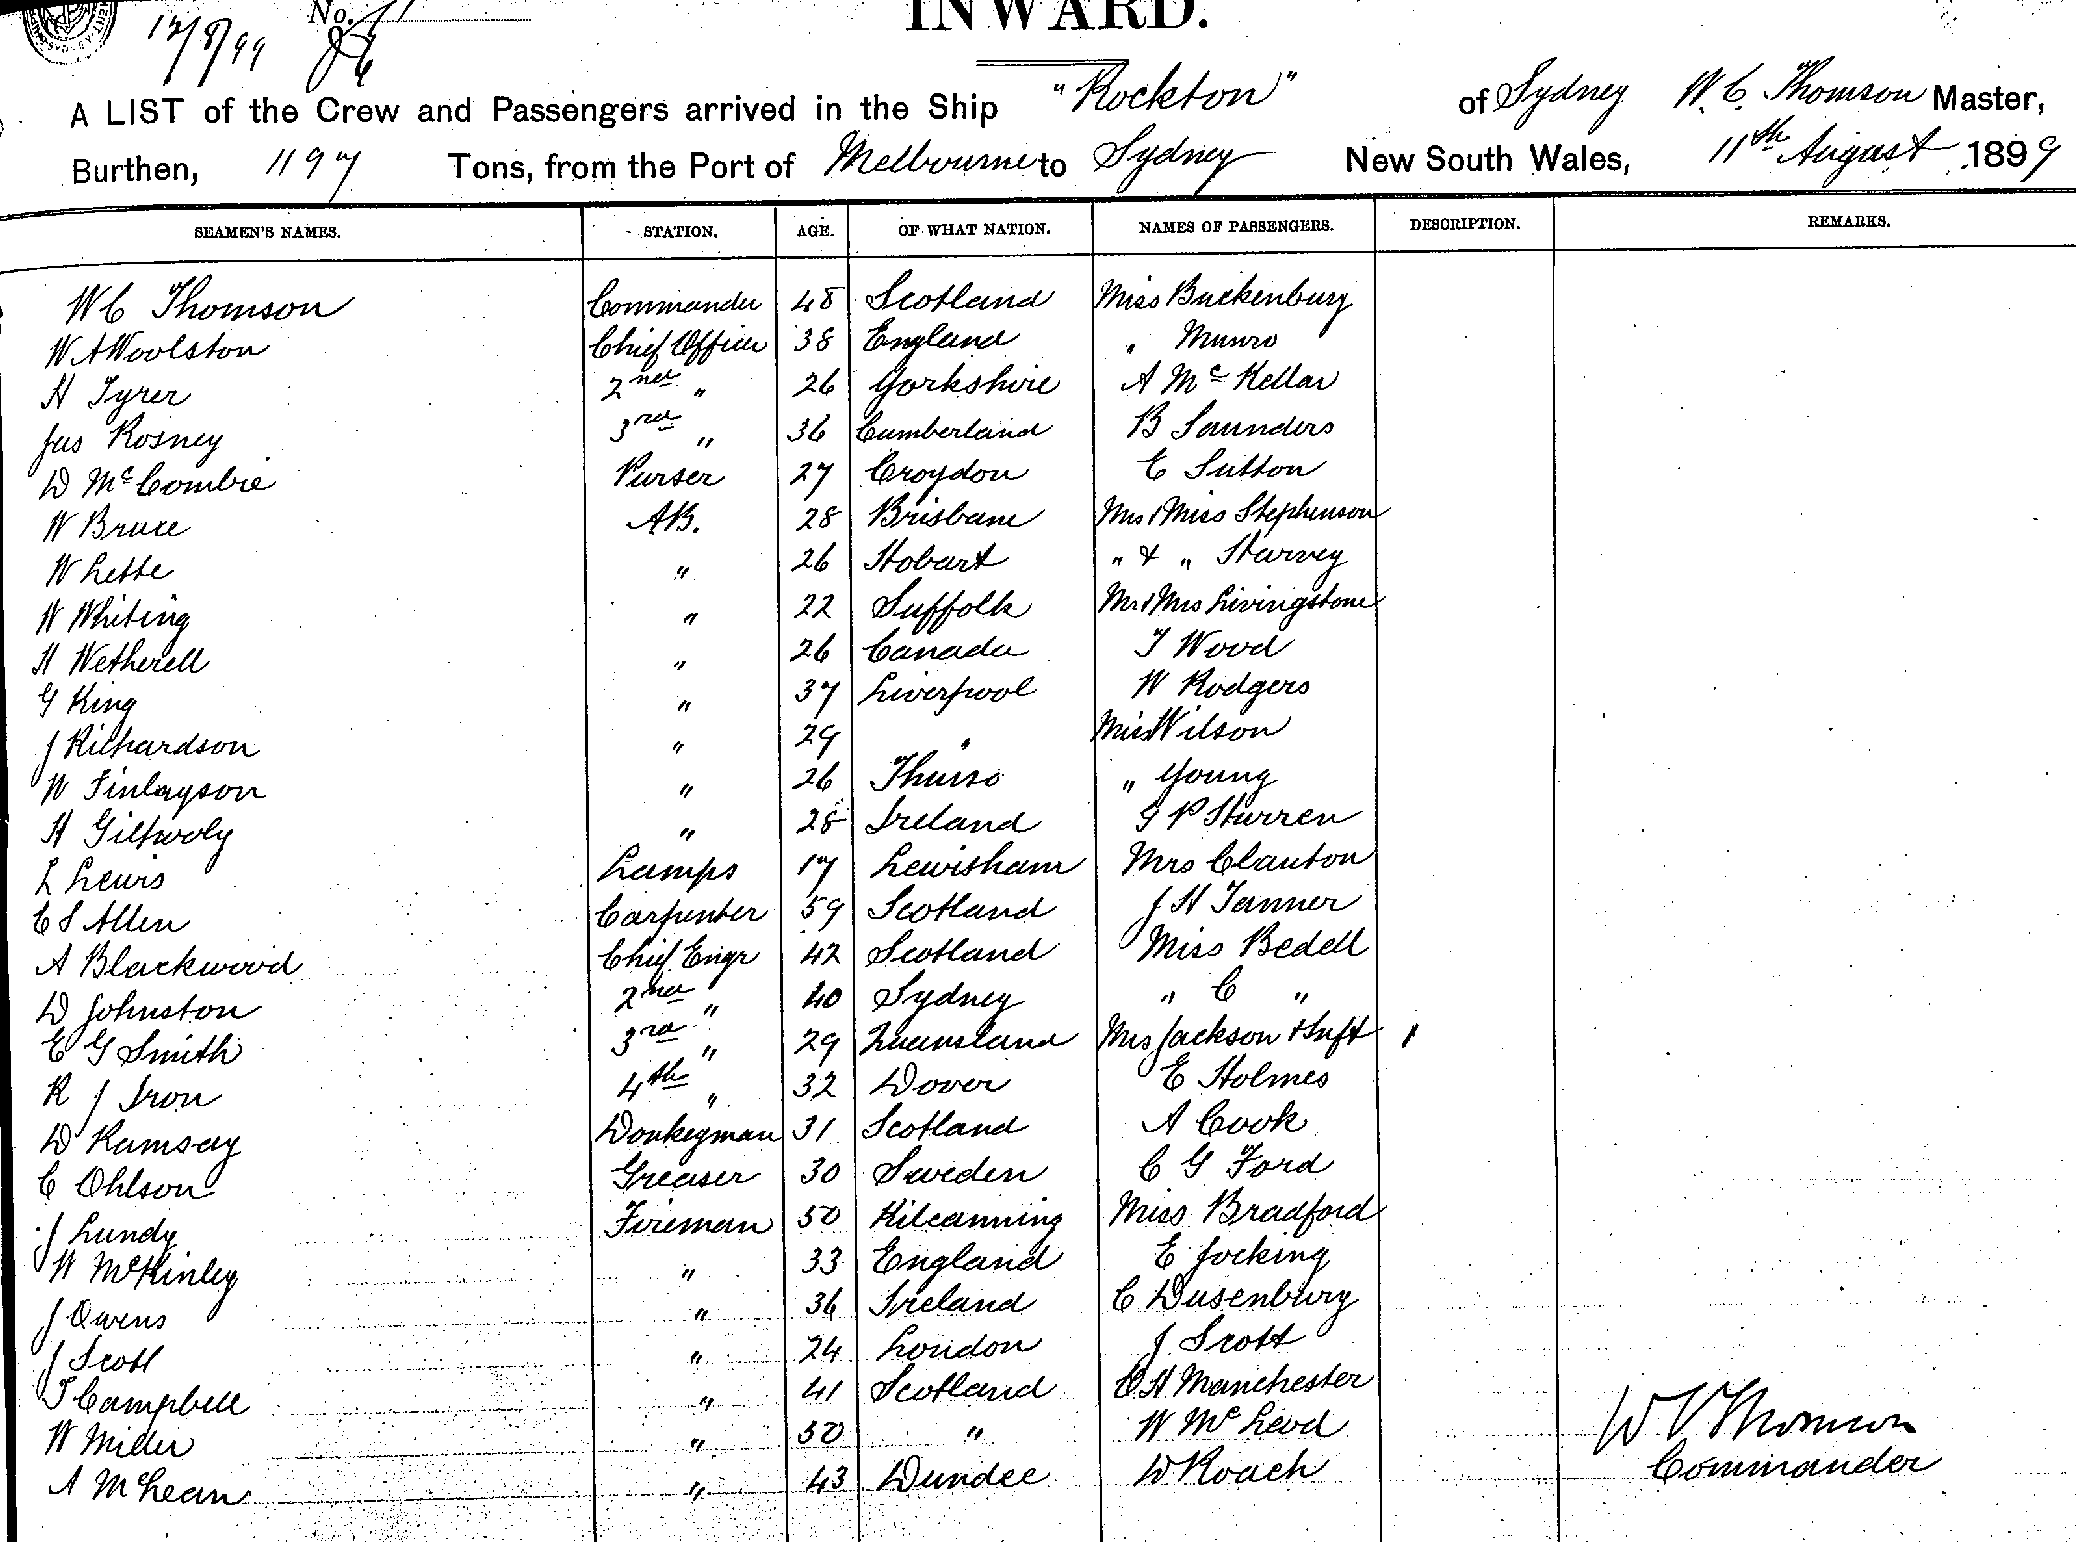 12/8/99 No. 1
INWARD.
A LIST of the Crew and Passengers arrived in the Ship "Rockton" of Sydney W. C. Thomson Master,
Burthen, 1197 Tons, from the Port of Melbourne to Sydney New South Wales, 11th August 1899
SEAMEN'S NAMES. STATION. AGE. OF WHAT NATION. NAMES OF PASSENGERS. DESCRIPTION. REMARKS.
W C Thomson Commander 48 Scotland Miss Buckenbury
W A Woolston Chief Officer 38 England " Munro
H Tyrer 2nd " 26 Yorkshire A McKellar
Jas Rosney 3rd " 36 Cumberland B Saunders
D McCombie Purser 27 Croydon C Sutton
W Bruce AB. 28 Brisbane Mrs & Miss Stephenson
W Lette " 26 Hobart " & " Harvey
W Whiting " 22 Suffolk Mr & Mrs Livingstone
H Wetherell " 26 Canada T Wood
G King " 37 Liverpool W Rodgers
J Richardson " 29 " Miss Wilson
W Finlayson " 26 Thurso " Young
H " 28 Ireland G P Hurren
L Lewis Lamps 17 Lewisham Mrs Clauton
C S Allen Carpenter 59 Scotland J H Tanner
A Blackwood Chief Engr 42 Scotland Miss Bedell
D Johnston 2nd " 40 Sydney " C "
E G Smith 3rd " 29 Queensland Mrs Jackson & Inft 1
R J Iron 4th " 32 Dover E Holmes
D Ramsay Donkeyman 31 Scotland A Cook
C Ohlson Greaser 30 Sweden C G Ford
J Lundy Fireman 50 Kilcanning Miss Bradford
W McKinley " 33 England E Jocking
J Owens " 36 Ireland C Dusenbury
J Scott " 24 London J Scott
T Campbell " 41 Scotland C H Manchester
W Miller " 50 " W McLeod
A McLean " 43 Dundee W Roach
W C Thomson
Commander